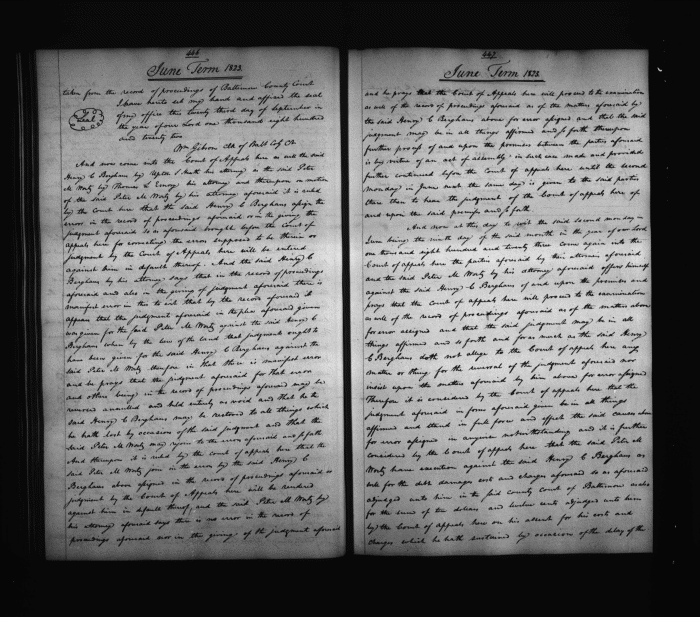 446
June Term 1823
taken from the record of proceedings of Baltimore County Court
I have hereto set my hand and affixed the seal
Seal
of my office this twenty third day of September in
the year of our Lord one thousand eight hundred
and twenty two
Wm Gibson Clk of Balt Coty Ct
And now come into the Court of Appeals here as well the said
Henry C Berghaus by his attorney as the said Peter
M Wontz by Thomas his attorney and thereupon on motion
of the said Peter M Wontz by his attorney aforesaid it is ruled
by the Court here that the said Henry C Berghaus assign the
errors in the record of proceedings aforesaid or in the giving the
judgment aforesaid so as aforesaid brought before the Court of
appeals here for correcting the errors supposed to be therein or
judgment by the Court of Appeals here will be entered
against him in default thereof. And the said Henry C
Berghaus by his attorney says that in the record of proceedings
aforesaid and also in the giving of judgment aforesaid there is
manifest error in this to wit that by the record aforesaid it
appears that the judgment aforesaid in the plea aforesaid given
was given for the said Peter M Wontz against the said Henry C
Berghaus when by the law of the land that judgment ought to
have been given for the said Henry C Berghaus against the
said Peter M Wontz therefore in that there is manifest error
and he prays that the judgment aforesaid for that error
and others being in the record of proceedings aforesaid may be
reversed annulled and held entirely as void and that he the
said Henry C Berghaus may be restored to all things which
he hath lost by occasion of the said judgment and that the
said Peter M Wontz may rejoin to the error aforesaid and so forth
And thereupon it is ruled by the court of appeals here that the
said Peter M Wontz join in the error by the said Henry C
Berghaus above assigned in the record of proceedings aforesaid or
judgment by the Court of Appeals here will be rendered
against him in default thereof, and the said Peter M Wontz by
his attorney aforesaid says there is no error in the record of
proceedings aforesaid nor in the giving of the judgment aforesaid
447
June Term 1823
and he prays that the Court of Appeals here will proceed to the examination
as well of the record of proceedings aforesaid as of the matters aforesaid by
the said Henry C Berghaus above for error assigned and that the said
judgment may be in all things affirmed and so forth thereupon
further process of and upon the premises between the parties aforesaid
is by virtue of an act of assembly in such case made and provided
further continued before the Court of appeals here until the second
Monday in June next the same day is given to the said parties
there then to hear the judgment of the Court of appeals here of
and upon the said premises and so forth
And now at this day to wit the said second monday in
June being the ninth day of the said month in the year of our Lord
one thousand eight hundred and twenty three come again into the
Court of appeals here the parties aforesaid by their attornies aforesaid
and the said Peter M Wontz by his attorney aforesaid offers himself
against the said Henry C Berghaus of and upon the premises and
prays that the Court of appeals here will proceed to the examination
as well of the record of proceedings aforesaid as of the matters above
for error assigned and that the said judgment may be in all
things affirmed and so forth and for as much as the said Henry
C Berghaus doth not allege to the Court of appeals here any
matter or thing for the reversal of the judgment aforesaid nor
insist upon the matters aforesaid by him above for error assigned
Therefore it is considered by the Court of appeals here that the
judgment aforesaid in form aforesaid given be in all things
affirmed and stand in full force and effect the said causes above
for error assigned in anywise notwithstanding and it is further
considered by the Court of appeals here that the said Peter M
Wontz have execution against the said Henry C Berghaus as
well for the debt damages costs and charges aforesaid so as aforesaid
adjudged unto him in the said county court of Baltimore as also
for the sum of ten dollars and twelve cents adjudged unto him
by the Court of Appeals here on his assent for his costs and
charges which he hath sustained by occasion of the delay of the